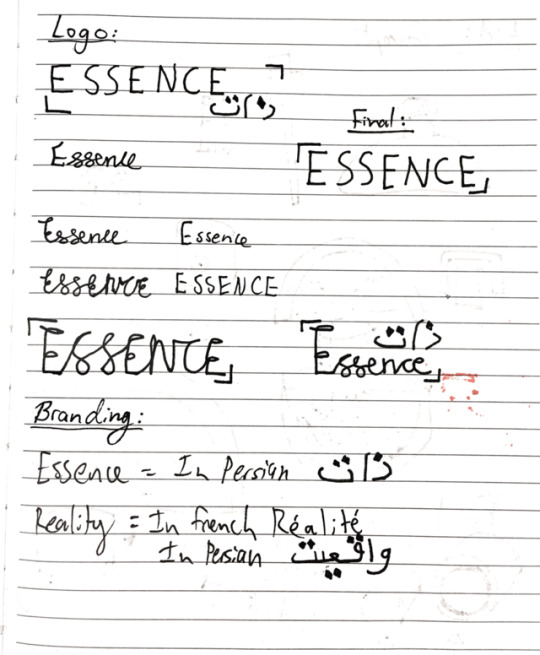 Logo:
ESSENCE
ذات
Final:
Essence
ESSENCE
Essence Essence
ESSENCE ESSENCE
ESSENCE
ذات
Essence
Branding:
Essence = In Persian ذات
Reality = In french Réalité
In Persian واقعیت